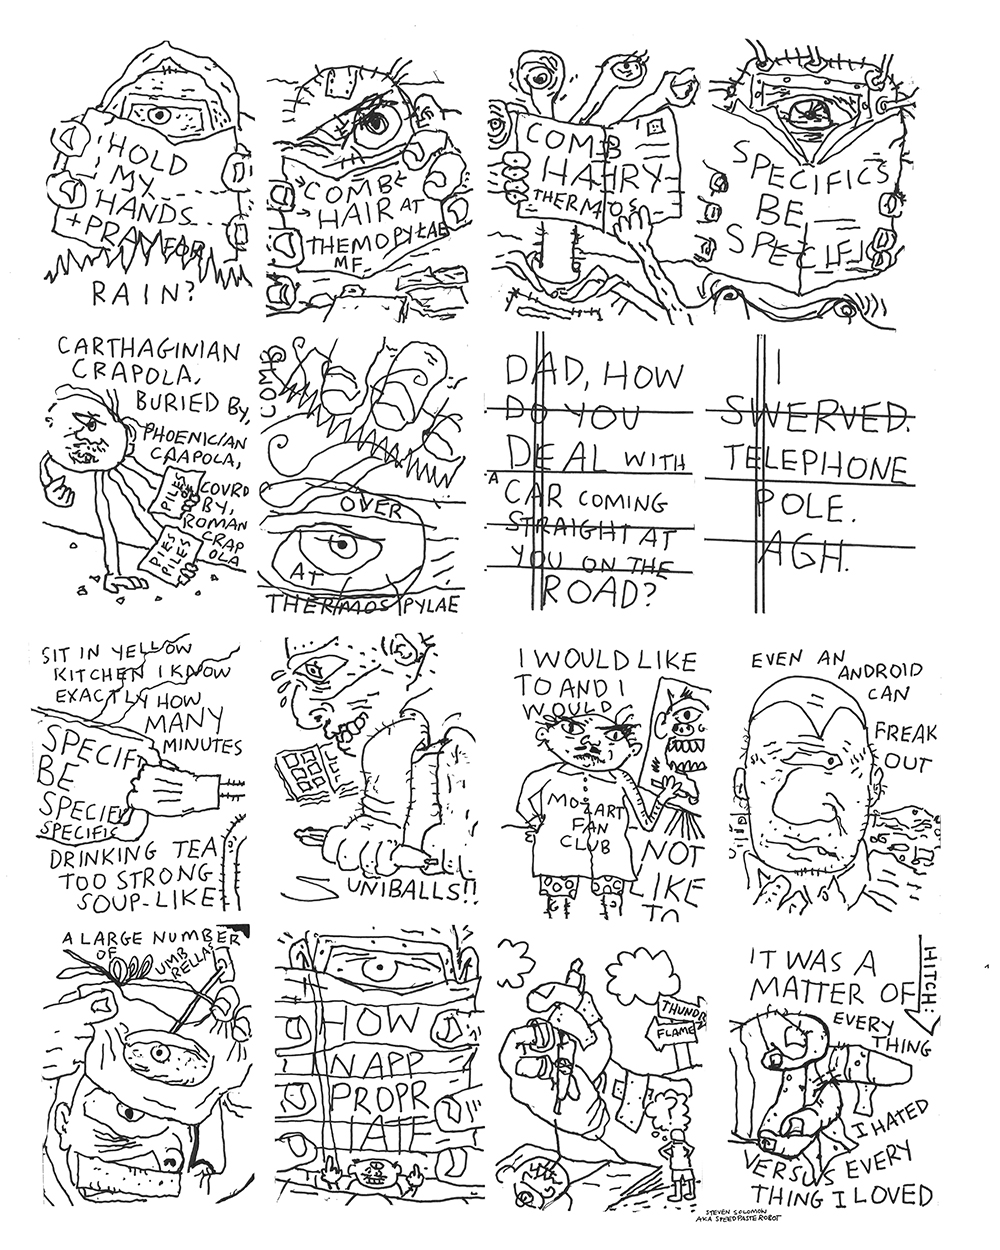 HOLD
MY
HANDS
+ PRAY FOR
RAIN?
COMB
HAIR AT
THEMOPYLAE
MF
COMB
HAHRY
THERMOS
SPECIFICS
BE
SPECIFIC
CARTHAGINIAN
CRAPOLA,
BURIED BY,
PHOENICIAN
CRAPOLA,
COVRD
BY,
ROMAN
CRAP
OLA
PILES
PILES
PILES
COMB
OVER
AT
THERMOSPYLAE
DAD, HOW
DO YOU
DEAL WITH
A
CAR COMING
STRAIGHT AT
YOU ON THE
ROAD?
I
SWERVED.
TELEPHONE
POLE.
AGH.
SIT IN YELLOW
KITCHEN I KNOW
EXACTLY HOW
MANY
MINUTES
SPECIF
BE
SPECIFI
SPECIFIC
DRINKING TEA
TOO STRONG
SOUP-LIKE
UNIBALLS!!
I WOULD LIKE
TO AND I
WOULD
MOZART
FAN
CLUB
NOT
LIKE
TO
EVEN AN
ANDROID
CAN
FREAK
OUT
A LARGE NUMBER
OF
UMB
RELLAS
HOW
NAPP
PROPR
IATE
THUNDR
FLAME
IT WAS A
MATTER OF
EVERY
THING
HITCH:
I HATED
VERSUS EVERY
THING I LOVED
STEVEN SOLOMON
AKA SPEEDPASTEROBOT